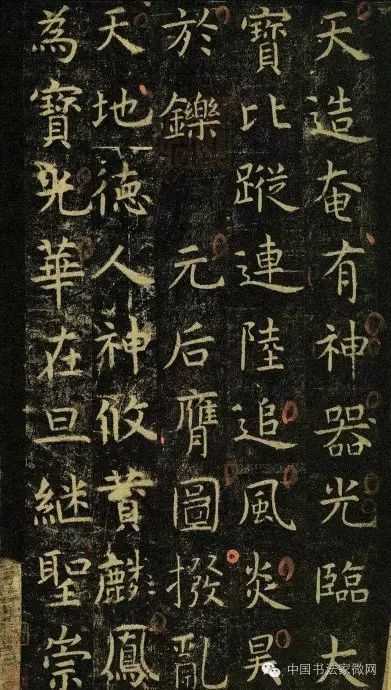 天造奄有神器光臨大
寶比蹤連陸追風炎昊
於鑠 元后膺圖撥亂
天地德人神攸贊麟鳳
為寶光華在旦繼聖崇
中国书法家微网